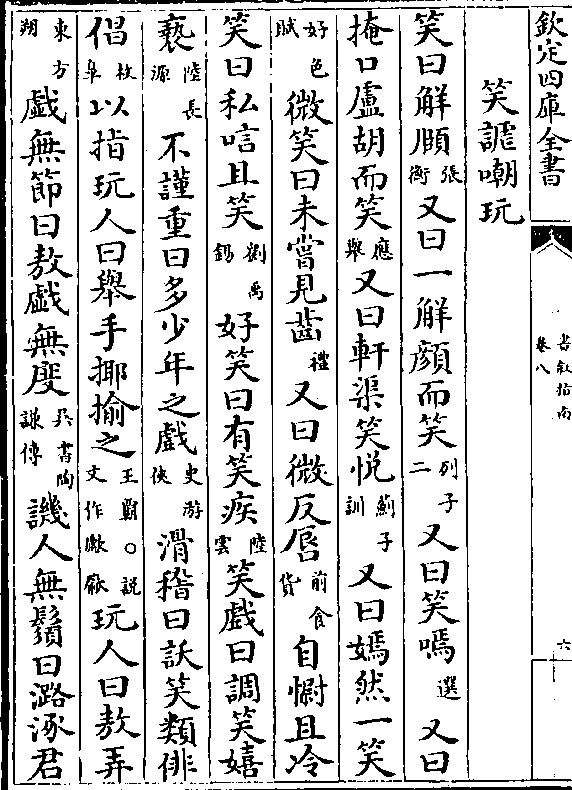 欽定四庫全書
書敘指南
卷八
六
笑謔嘲玩
笑曰解頤張衡又曰一解顏而笑列子二又曰笑嗎選又曰
掩口盧胡而笑應舉又曰軒渠笑悅薊子訓又曰嫣然一笑
好色賦微笑曰未嘗見齒禮又曰微反唇前食貨自慰且冷
笑曰私唁且笑劉禹錫好笑曰有笑疾陸雲笑戲曰調笑嬉
褻陸長源不謹重曰多少年之戲史游俠滑稽曰詼笑類俳
倡枚臯以指玩人曰舉手揶揄之王覇○説文作歋㰚玩人曰敖弄
東方朔戲無節曰敖戲無度吳書陶謙傳譏人無鬚曰潞涿君